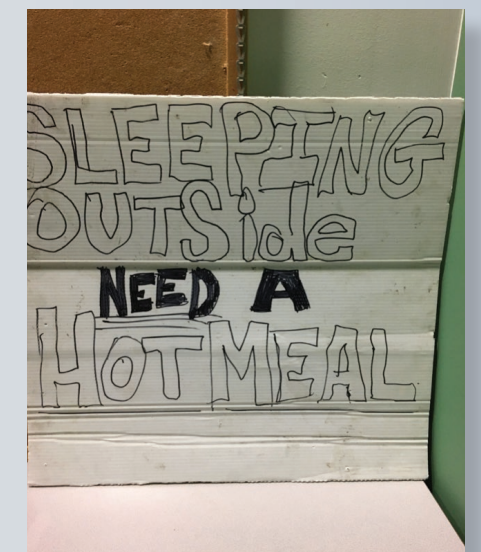 SLEEPING
OUTSide
NEED A
HOT MEAL